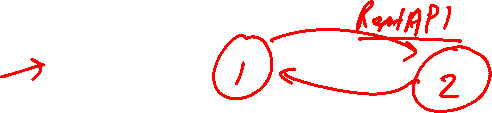 RestAPI
1
2